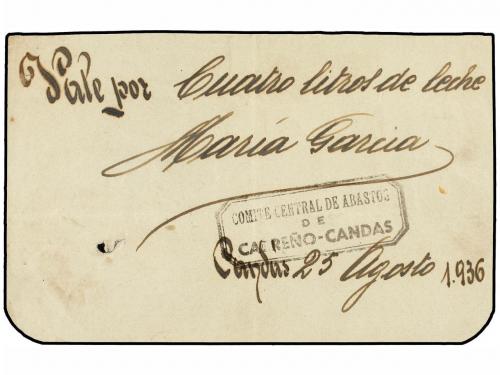 Vale por Cuatro litros de leche
María Garcia
COMITE CENTRAL DE ABASTOS
DE
CARREÑO-CANDAS
Candas 25 Agosto 1.936